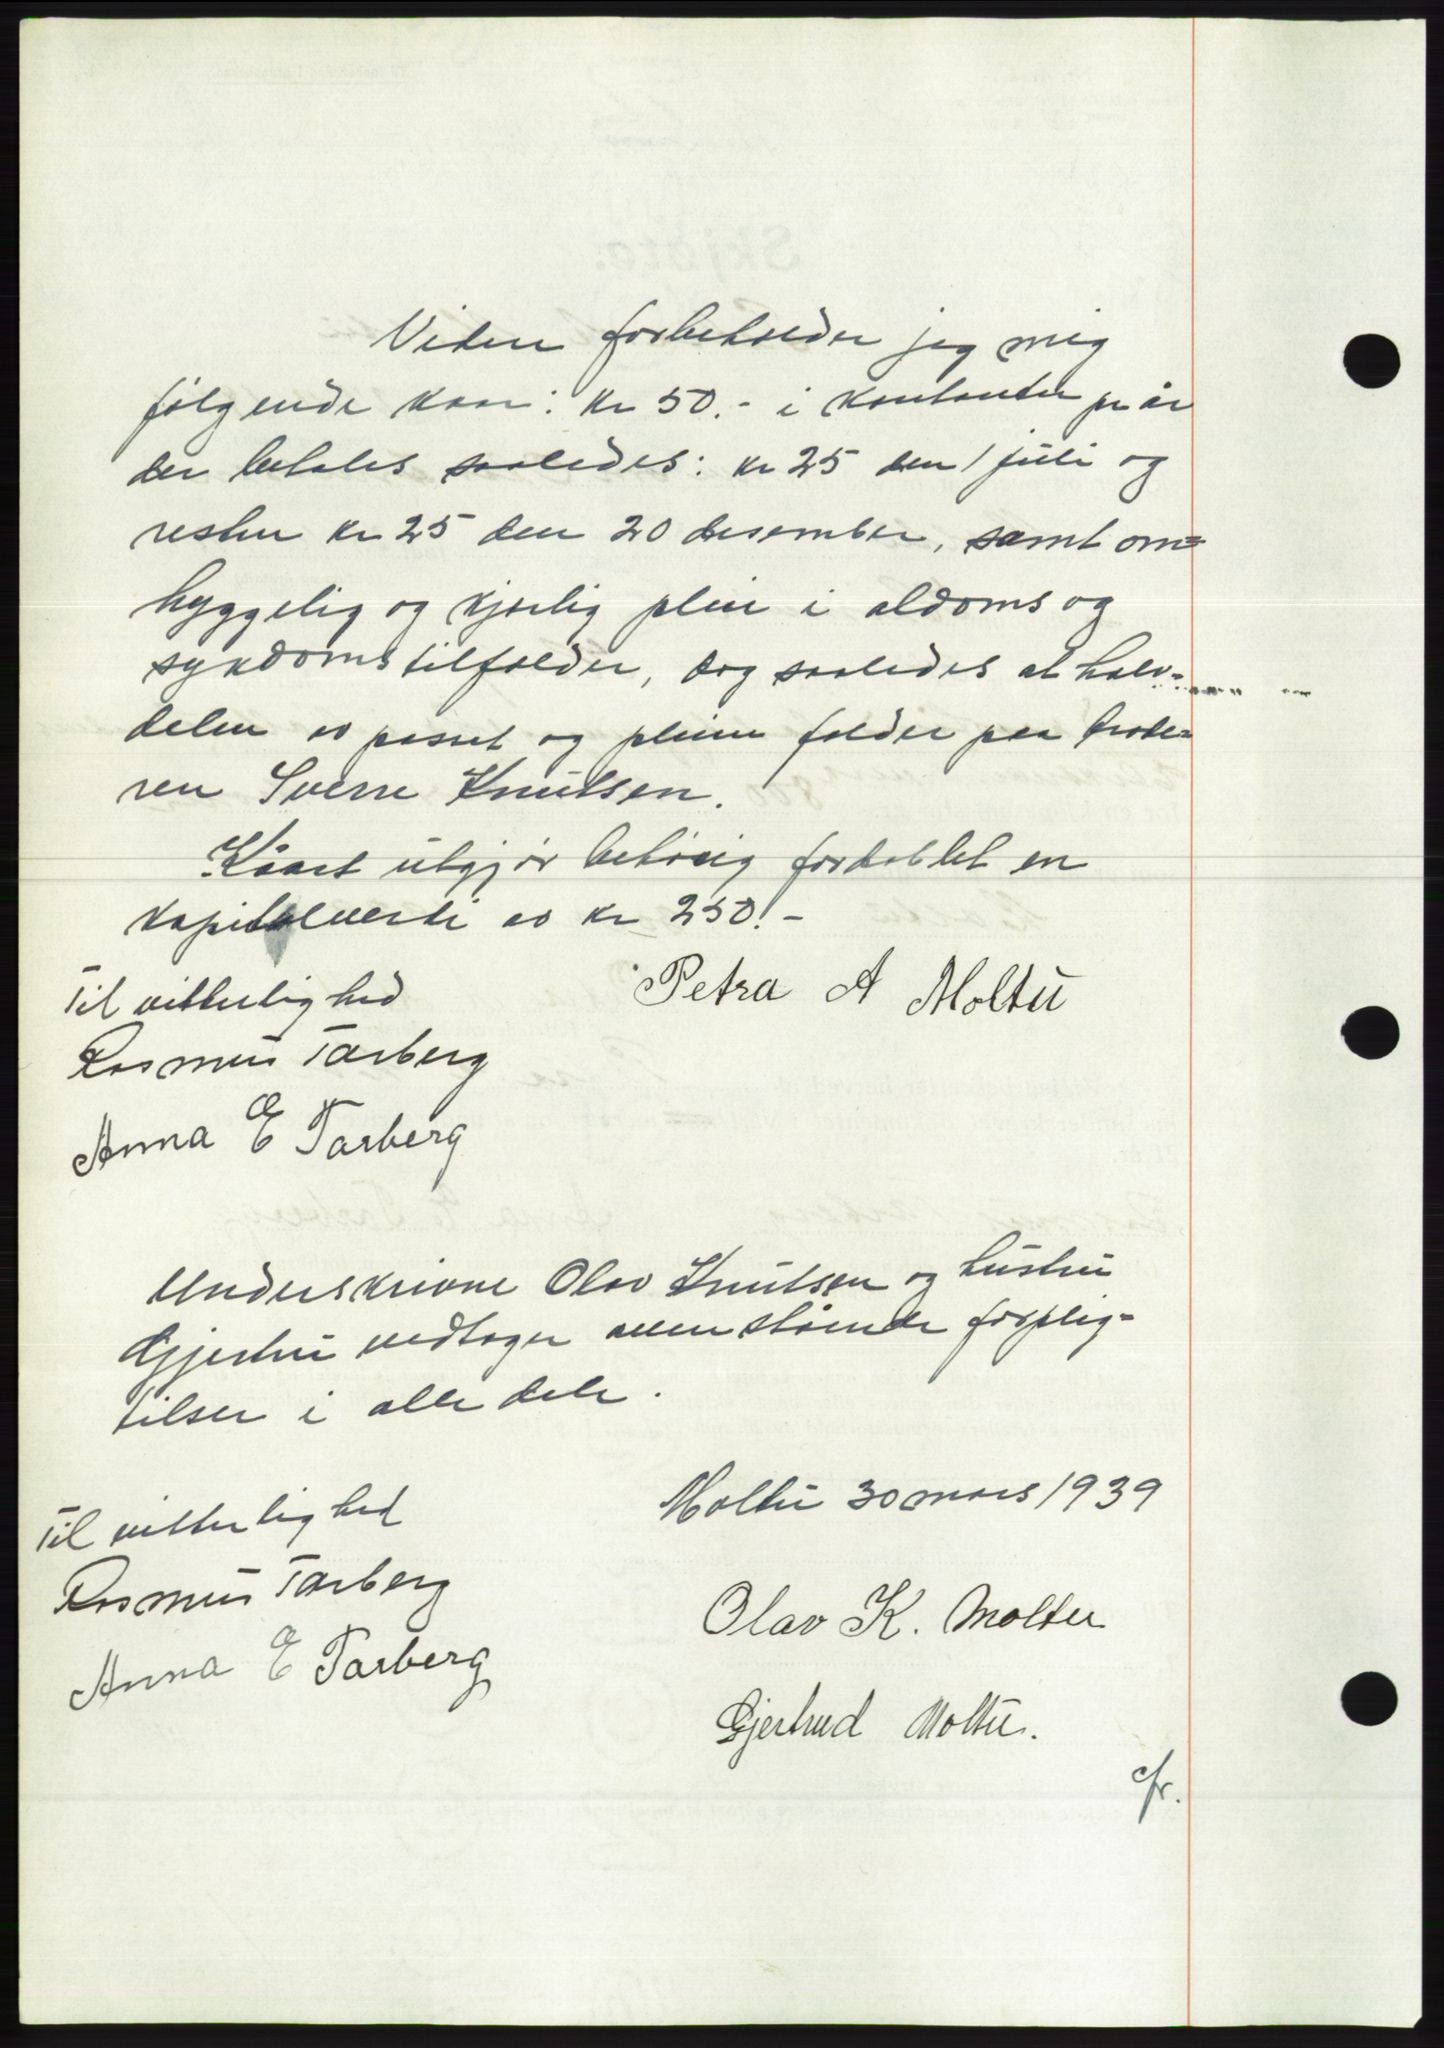 Videre forbeholder jeg mig
følgende kaar: kr 50.- i kontanter pr år
der betales saaledes: kr 25 den 1 juli og
resten kr 25 den 20 desember, samt om=
hyggelig og kjærlig pleie i aldoms og
sykdomstilfælder, dog saaledes at halv-
delen av passet og pleien falder paa brode=
ren Sverre Knutsen.
Kåaret utgjør behørig fordoblet en
kapitalverdi av kr 250.-
Til vitterlighed
Petra A Moltu
Rasmus Tarberg
Anna E Tarberg
Underskrivne Olav Knutsen og hustru
Gjertru vedtager ovenstående forplig=
telser i alle dele.
Moltu 30 mars 1939
Til vitterlighed
Rasmus Tarberg
Olav K. Moltu
Anna E Tarberg
Gjertrud Moltu.